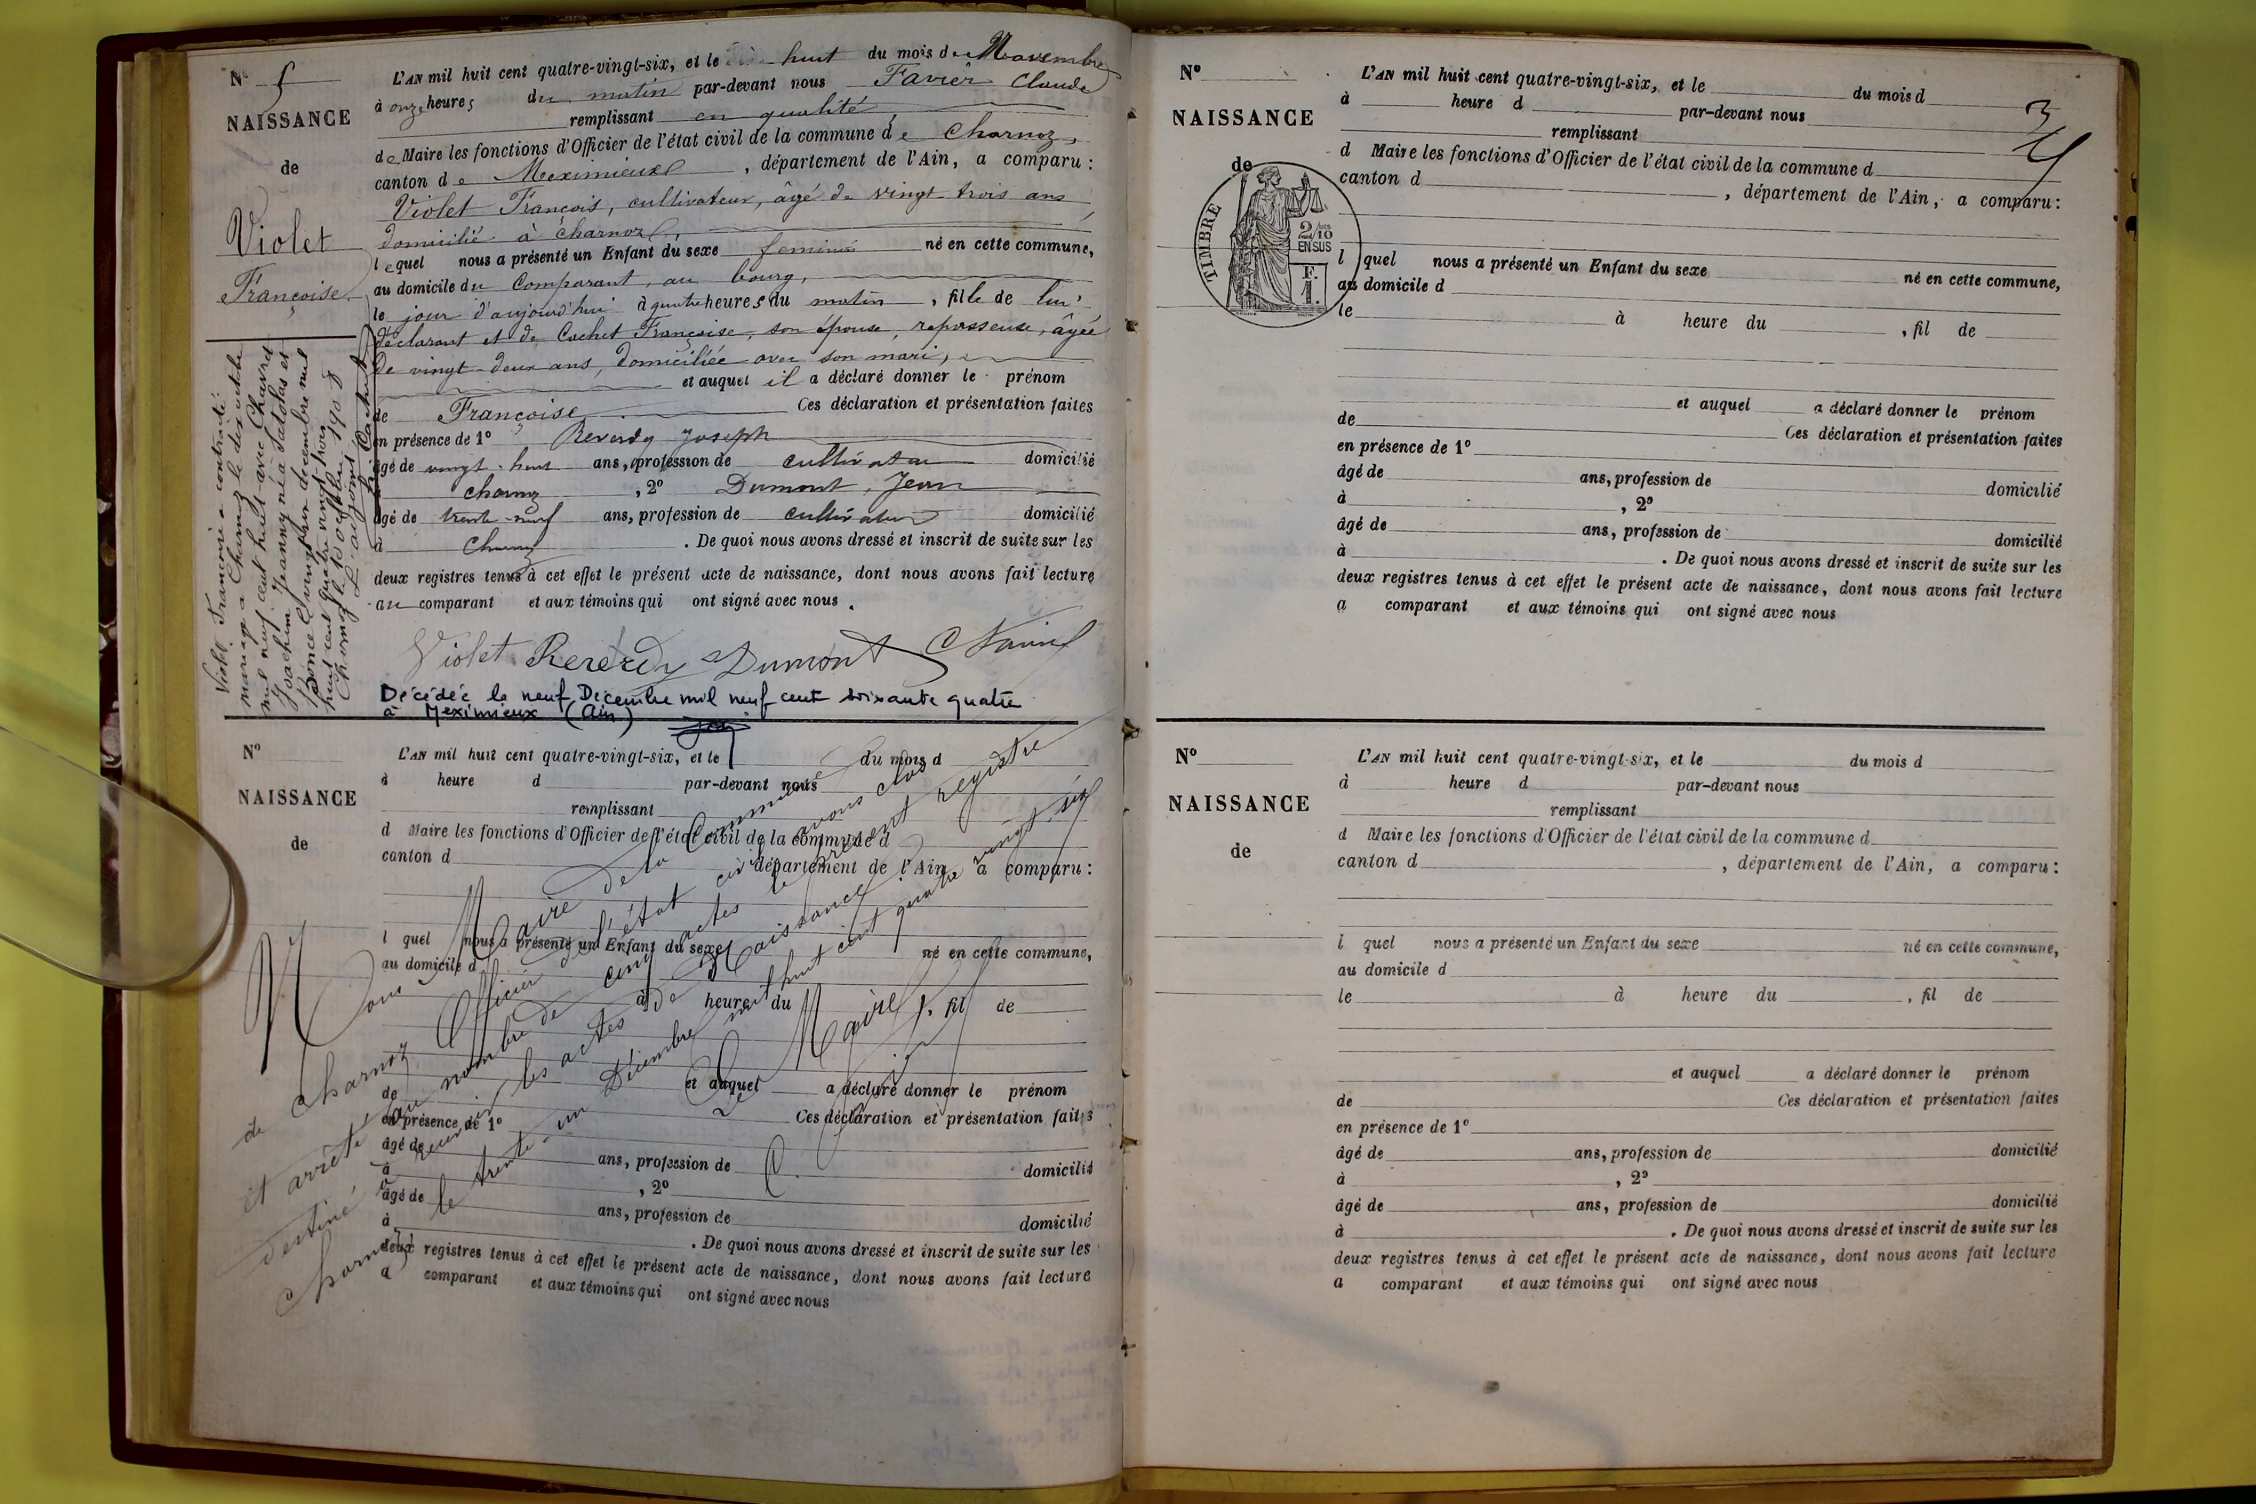 Nº 5
NAISSANCE
de
Violet
Françoise
L'AN mil huit cent quatre-vingt-six, et le dix huit du mois de Novembre
à onze heures du matin par-devant nous Favier Claude
remplissant en qualité
de Maire les fonctions d'Officier de l'état civil de la commune de Charnoz,
canton de Meximieux, département de l'Ain, a comparu :
Violet François, cultivateur, âgé de vingt-trois ans,
domicilié à Charnoz,
lequel nous a présenté un Enfant du sexe feminin né en cette commune,
au domicile du Comparant, au bourg,
le jour d'aujourd'hui à quatre heures du matin, fille de lui
déclarant et de Cachet Françoise, son épouse, repasseuse, âgée
de vingt-deux ans, domiciliée avec son mari,
et auquel il a déclaré donner le prénom
de Françoise Ces déclaration et présentation faites
en présence de 1º Reverdy Joseph
âgé de vingt-huit ans, profession de cultivateur domicilié
à Charnoz, 2º Dumont, Jean
âgé de trente-neuf ans, profession de cultivateur domicilié
à Charnoz. De quoi nous avons dressé et inscrit de suite sur les
deux registres tenus à cet effet le présent acte de naissance, dont nous avons fait lecture
au comparant et aux témoins qui ont signé avec nous.
Violet Reverdy Dumont C Favier
Décédée le neuf Decembre mil neuf cent soixante quatre
à Meximieux (Ain)
Violet Francoise a contracté
mariage à Charnoz le dix octobre
mil neuf cent huit avec Chavret
Joachim Jeanny né à Satolas et
Bonce
huit cent quatre vingt trois
Charnoz le 10 octobre 1908
Nº
NAISSANCE
de
L'AN mil huit cent quatre-vingt-six, et le du mois d
à heure d par-devant nous
remplissant
d Maire les fonctions d'Officier de l'état civil de la commune d
canton d , département de l'Ain, a comparu :
l quel nous a présenté un Enfant du sexe né en cette commune,
au domicile d
à heure du , fil de
et auquel a déclaré donner le prénom
de Ces déclaration et présentation faites
en présence de 1º
âgé de ans, profession de domicilié
à , 2º
âgé de ans, profession de domicilié
à . De quoi nous avons dressé et inscrit de suite sur les
deux registres tenus à cet effet le présent acte de naissance, dont nous avons fait lecture
a comparant et aux témoins qui ont signé avec nous
Nous Maire de la Commune
de Charnoz Officier de l'état civil avons clos
et arrêté au nombre de cinq actes le présent registre
destiné à recevoir les actes de Naissance
Charnoz le trente-un Décembre mil huit cent quatre vingt six
Le Maire
C. Favier
Nº
NAISSANCE
de
TIMBRE
2/10
EN SUS
F.
1.
L'AN mil huit cent quatre-vingt-six, et le du mois d
à heure d par-devant nous
remplissant
d Maire les fonctions d'Officier de l'état civil de la commune d
canton d , département de l'Ain, a comparu :
l quel nous a présenté un Enfant du sexe né en cette commune,
au domicile d
le à heure du , fil de
et auquel a déclaré donner le prénom
de Ces déclaration et présentation faites
en présence de 1º
âgé de ans, profession de domicilié
à , 2º
âgé de ans, profession de domicilié
à . De quoi nous avons dressé et inscrit de suite sur les
deux registres tenus à cet effet le présent acte de naissance, dont nous avons fait lecture
a comparant et aux témoins qui ont signé avec nous
Nº
NAISSANCE
de
L'AN mil huit cent quatre-vingt-six, et le du mois d
à heure d par-devant nous
remplissant
d Maire les fonctions d'Officier de l'état civil de la commune d
canton d , département de l'Ain, a comparu :
l quel nous a présenté un Enfant du sexe né en cette commune,
au domicile d
le à heure du , fil de
et auquel a déclaré donner le prénom
de Ces déclaration et présentation faites
en présence de 1º
âgé de ans, profession de domicilié
à , 2º
âgé de ans, profession de domicilié
à . De quoi nous avons dressé et inscrit de suite sur les
deux registres tenus à cet effet le présent acte de naissance, dont nous avons fait lecture
a comparant et aux témoins qui ont signé avec nous